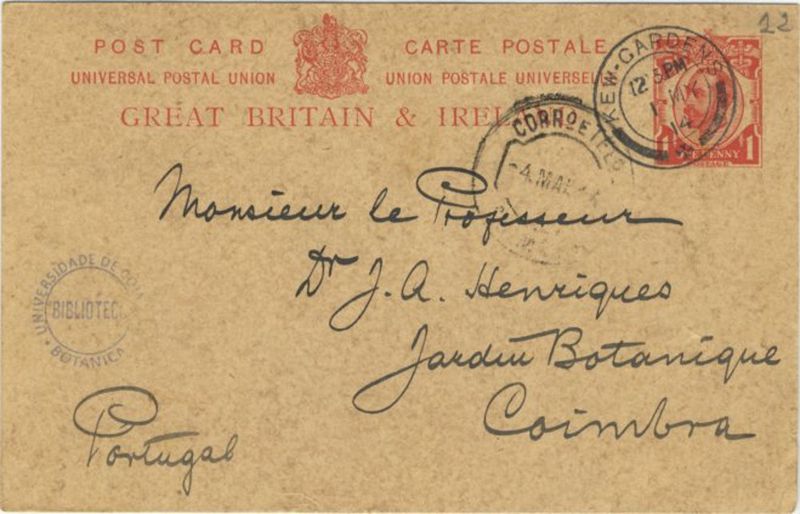 22
POST CARD CARTE POSTALE
UNIVERSAL POSTAL UNION UNION POSTALE UNIVERSELLE
GREAT BRITAIN & IREL
KEW·GARDENS
12 5 PM
1 MY
14
1 PENNY 1
POSTAGE
CORRO E TELG
4 MAI
Monsieur le Professeur
Dr J. A. Henriques
Jardin Botanique
Coimbra
Portugal
UNIVERSIDADE DE COI
BIBLIOTEC
BOTANICA